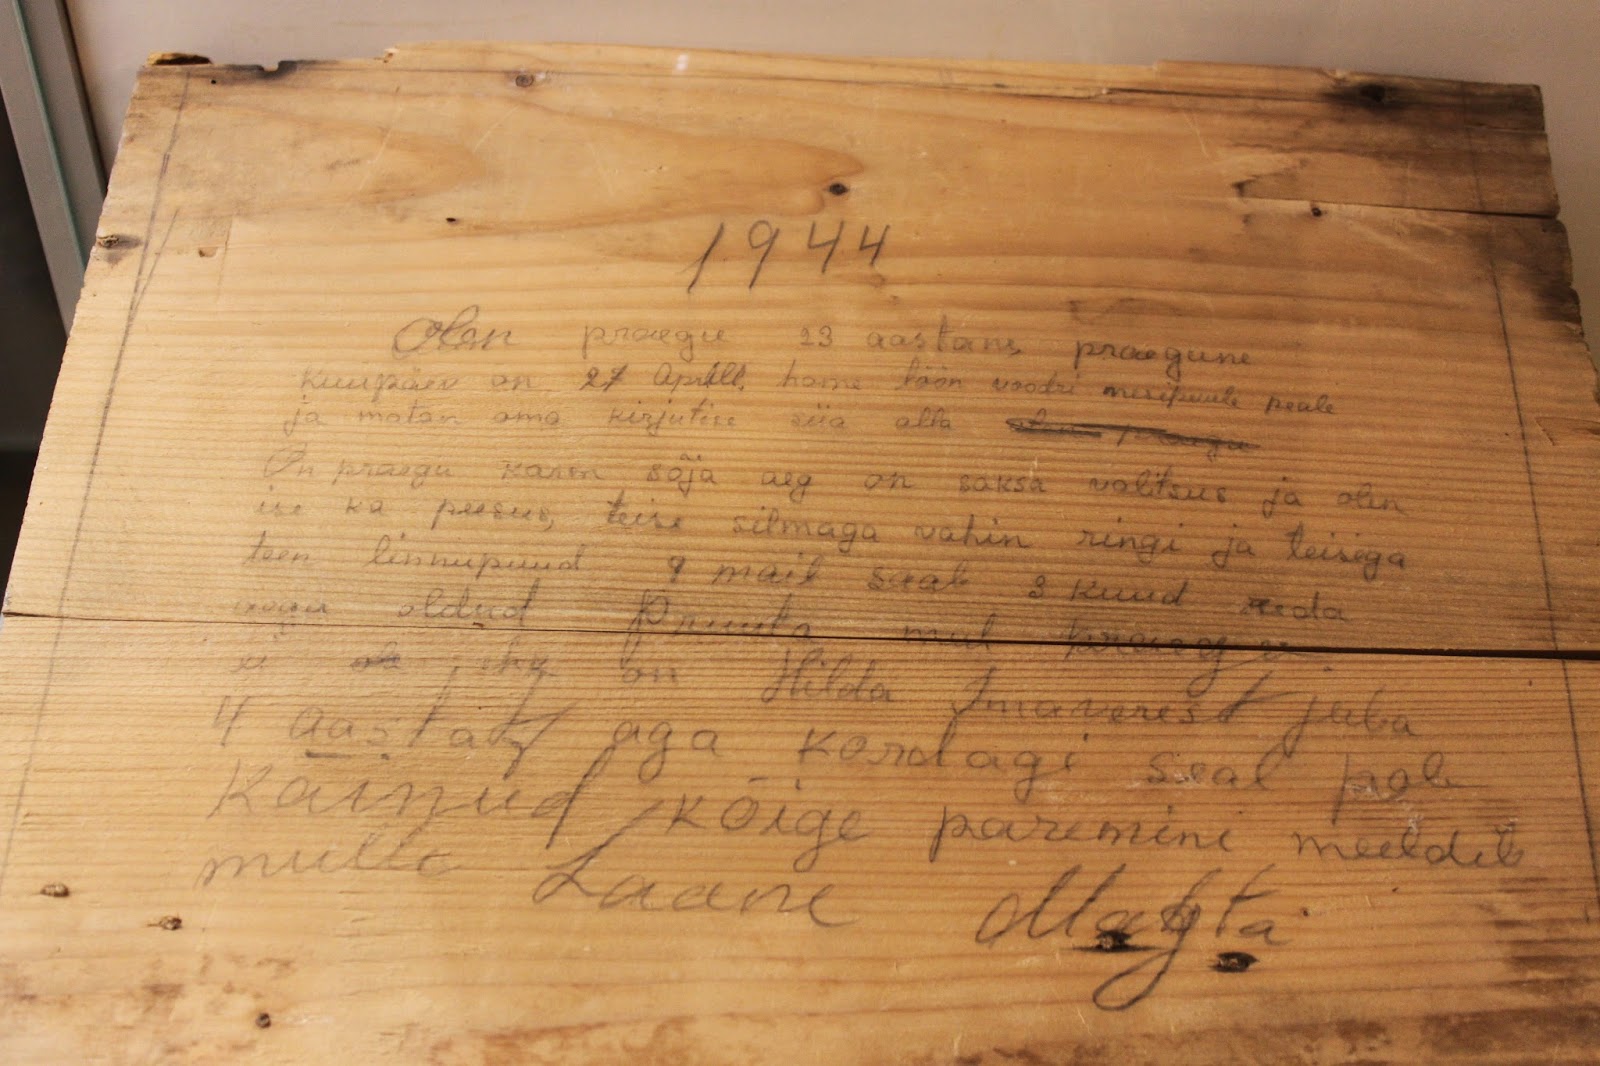 1944
Olen praegu 23 aastane, praegune
kuupäev on 27 Aprill. home löön voodri mesipuule peale
ja matan oma kirjutise siia alla
On praegu karm sõja aeg on saksa valitsus ja olen
ise ka puusus, teise silmaga vahin ringi ja teisega
teen linnupuud 9 mail saab 3 kuud seda
oldud Pruuti mul praegu
ei ole on Hilda Imaverest juba
4 aastat aga kordagi seal pole
Käinud kõige paremini meeldib
mulle Laane Mahta